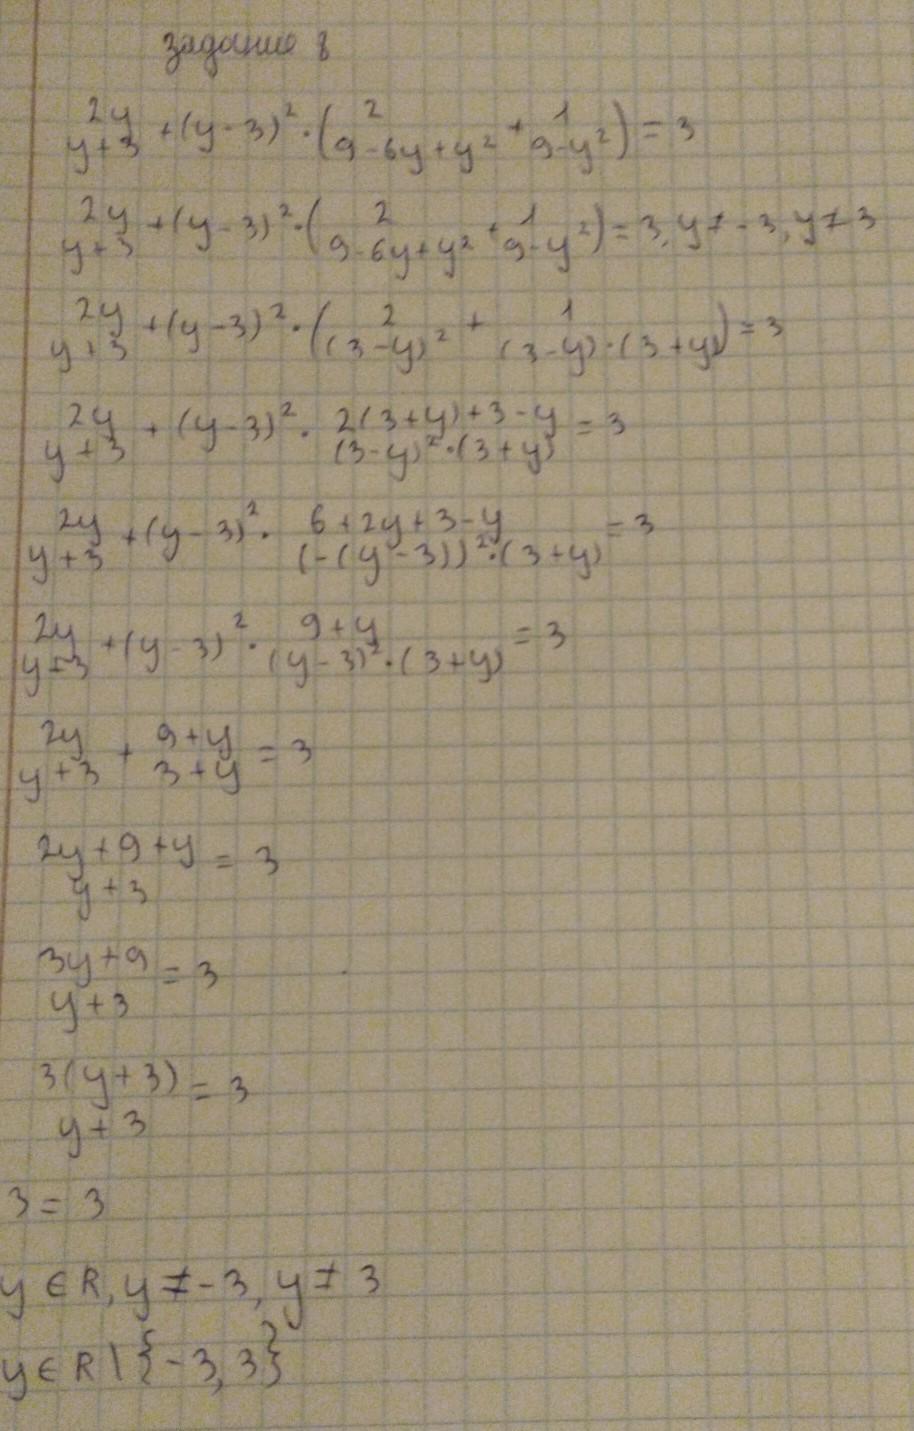 задание 8
2y 2 1
y+3 +(y-3)²·(9-6y+y² + 9-y²)=3
2y 2 1
y+3 +(y-3)²·(9-6y+y² + 9-y²)=3, y≠-3, y≠3
2y 2 1
y+3 +(y-3)²·((3-y)² + (3-y)·(3+y))=3
2y 2(3+y)+3-y
y+3 +(y-3)²· (3-y)²·(3+y) =3
2y 6+2y+3-y
y+3 +(y-3)²· (-(y-3))²·(3+y) =3
2y 9+y
y+3 +(y-3)²· (y-3)²·(3+y) =3
2y 9+y
y+3 + 3+y =3
2y+9+y
y+3 =3
3y+9
y+3 =3
3(y+3)
y+3 =3
3=3
y∈R, y≠-3, y≠3
y∈R\{-3,3}